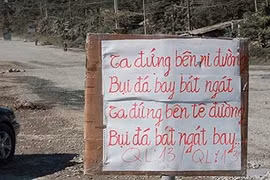 Ta đứng bên ni đường
Bụi đá bay bát ngát
Ta đứng bên tê đường
Bụi đá bát ngát bay...
QL 13 / QL 13